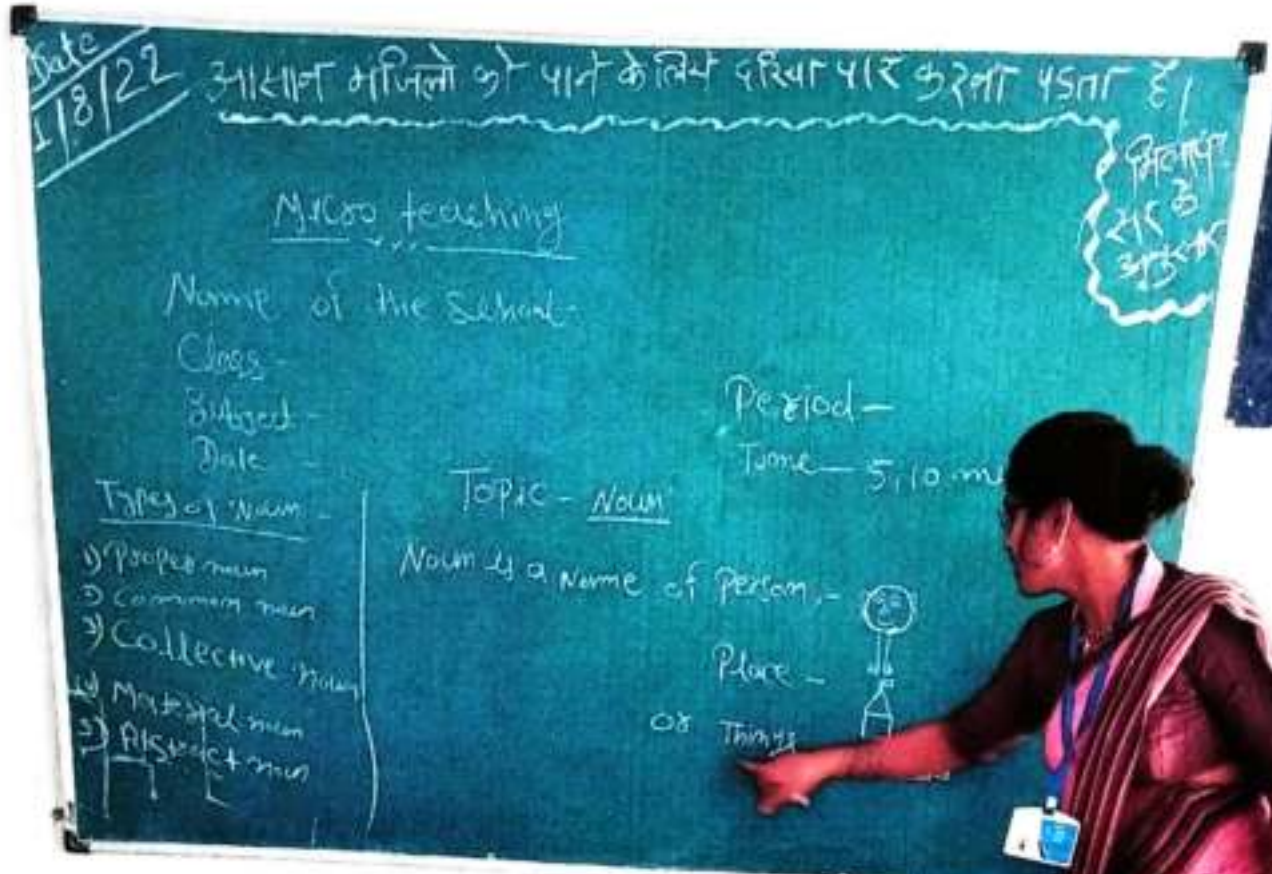 Date
1/8/22
आसान मंजिलो को पाने के लिये दरिया पार करना पडता है।
सर के
अनुसार
Micro teaching
Name of the School-
Class -
Subject -
Date -
Period -
Time - 5,10 m
Types of Noun -
1) Proper noun
2) Common noun
3) Collective noun
4) Material noun
5) Abstract noun
Topic - Noun
Noun is a Name of Person,-
Place -
or Things